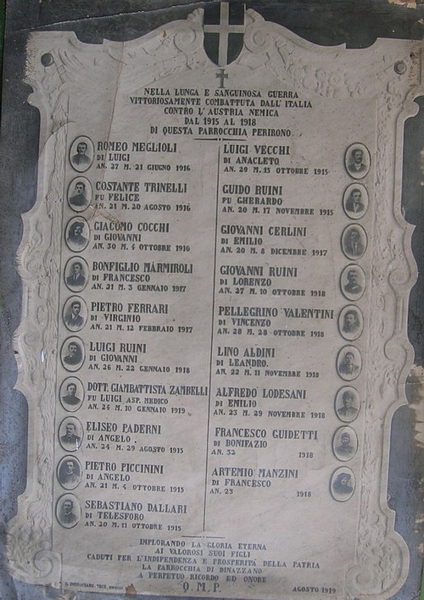 NELLA LUNGA E SANGUINOSA GUERRA
VITTORIOSAMENTE COMBATTUTA DALL'ITALIA
CONTRO L'AUSTRIA NEMICA
DAL 1915 AL 1918
DI QUESTA PARROCCHIA PERIRONO
ROMEO MEGLIOLI
DI LUIGI
AN. 27 M. 21 GIUGNO 1916
COSTANTE TRINELLI
FU FELICE
AN. 21 M. 20 AGOSTO 1916
GIACOMO COCCHI
DI GIOVANNI
AN. 30 M. 4 OTTOBRE 1916
BONFIGLIO MARMIROLI
DI FRANCESCO
AN. 21 M. 3 GENNAIO 1917
PIETRO FERRARI
DI VIRGINIO
AN. 21 M. 12 FEBBRAIO 1917
LUIGI RUINI
DI GIOVANNI
AN. 26 M. 22 GENNAIO 1918
DOTT. GIAMBATTISTA ZAMBELLI
FU LUIGI ASP. MEDICO
AN. 24 M. 10 GENNAIO 1919
ELISEO PADERNI
DI ANGELO
AN. 24 M. 29 AGOSTO 1915
PIETRO PICCININI
DI ANGELO
AN. 21 M. 4 OTTOBRE 1915
SEBASTIANO DALLARI
DI TELESFORO
AN. 20 M. 11 OTTOBRE 1915
LUIGI VECCHI
DI ANACLETO
AN. 29 M. 15 OTTOBRE 1915
GUIDO RUINI
FU GHERARDO
AN. 20 M. 17 NOVEMBRE 1915
GIOVANNI CERLINI
DI EMILIO
AN. 20 M. 8 DICEMBRE 1917
GIOVANNI RUINI
DI LORENZO
AN. 27 M. 10 OTTOBRE 1918
PELLEGRINO VALENTINI
DI VINCENZO
AN. 28 M. 28 OTTOBRE 1918
LINO ALDINI
DI LEANDRO
AN. 22 M. 11 NOVEMBRE 1918
ALFREDO LODESANI
DI EMILIO
AN. 23 M. 29 NOVEMBRE 1918
FRANCESCO GUIDETTI
DI BONIFAZIO
AN. 32 1918
ARTEMIO MANZINI
DI FRANCESCO
AN. 23 1918
IMPLORANDO LA GLORIA ETERNA
AI VALOROSI SUOI FIGLI
CADUTI PER L'INDIPENDENZA E PROSPERITÀ DELLA PATRIA
LA PARROCCHIA DI DINAZZANO
A PERPETUO RICORDO ED ONORE
Q. M. P.
AGOSTO 1919